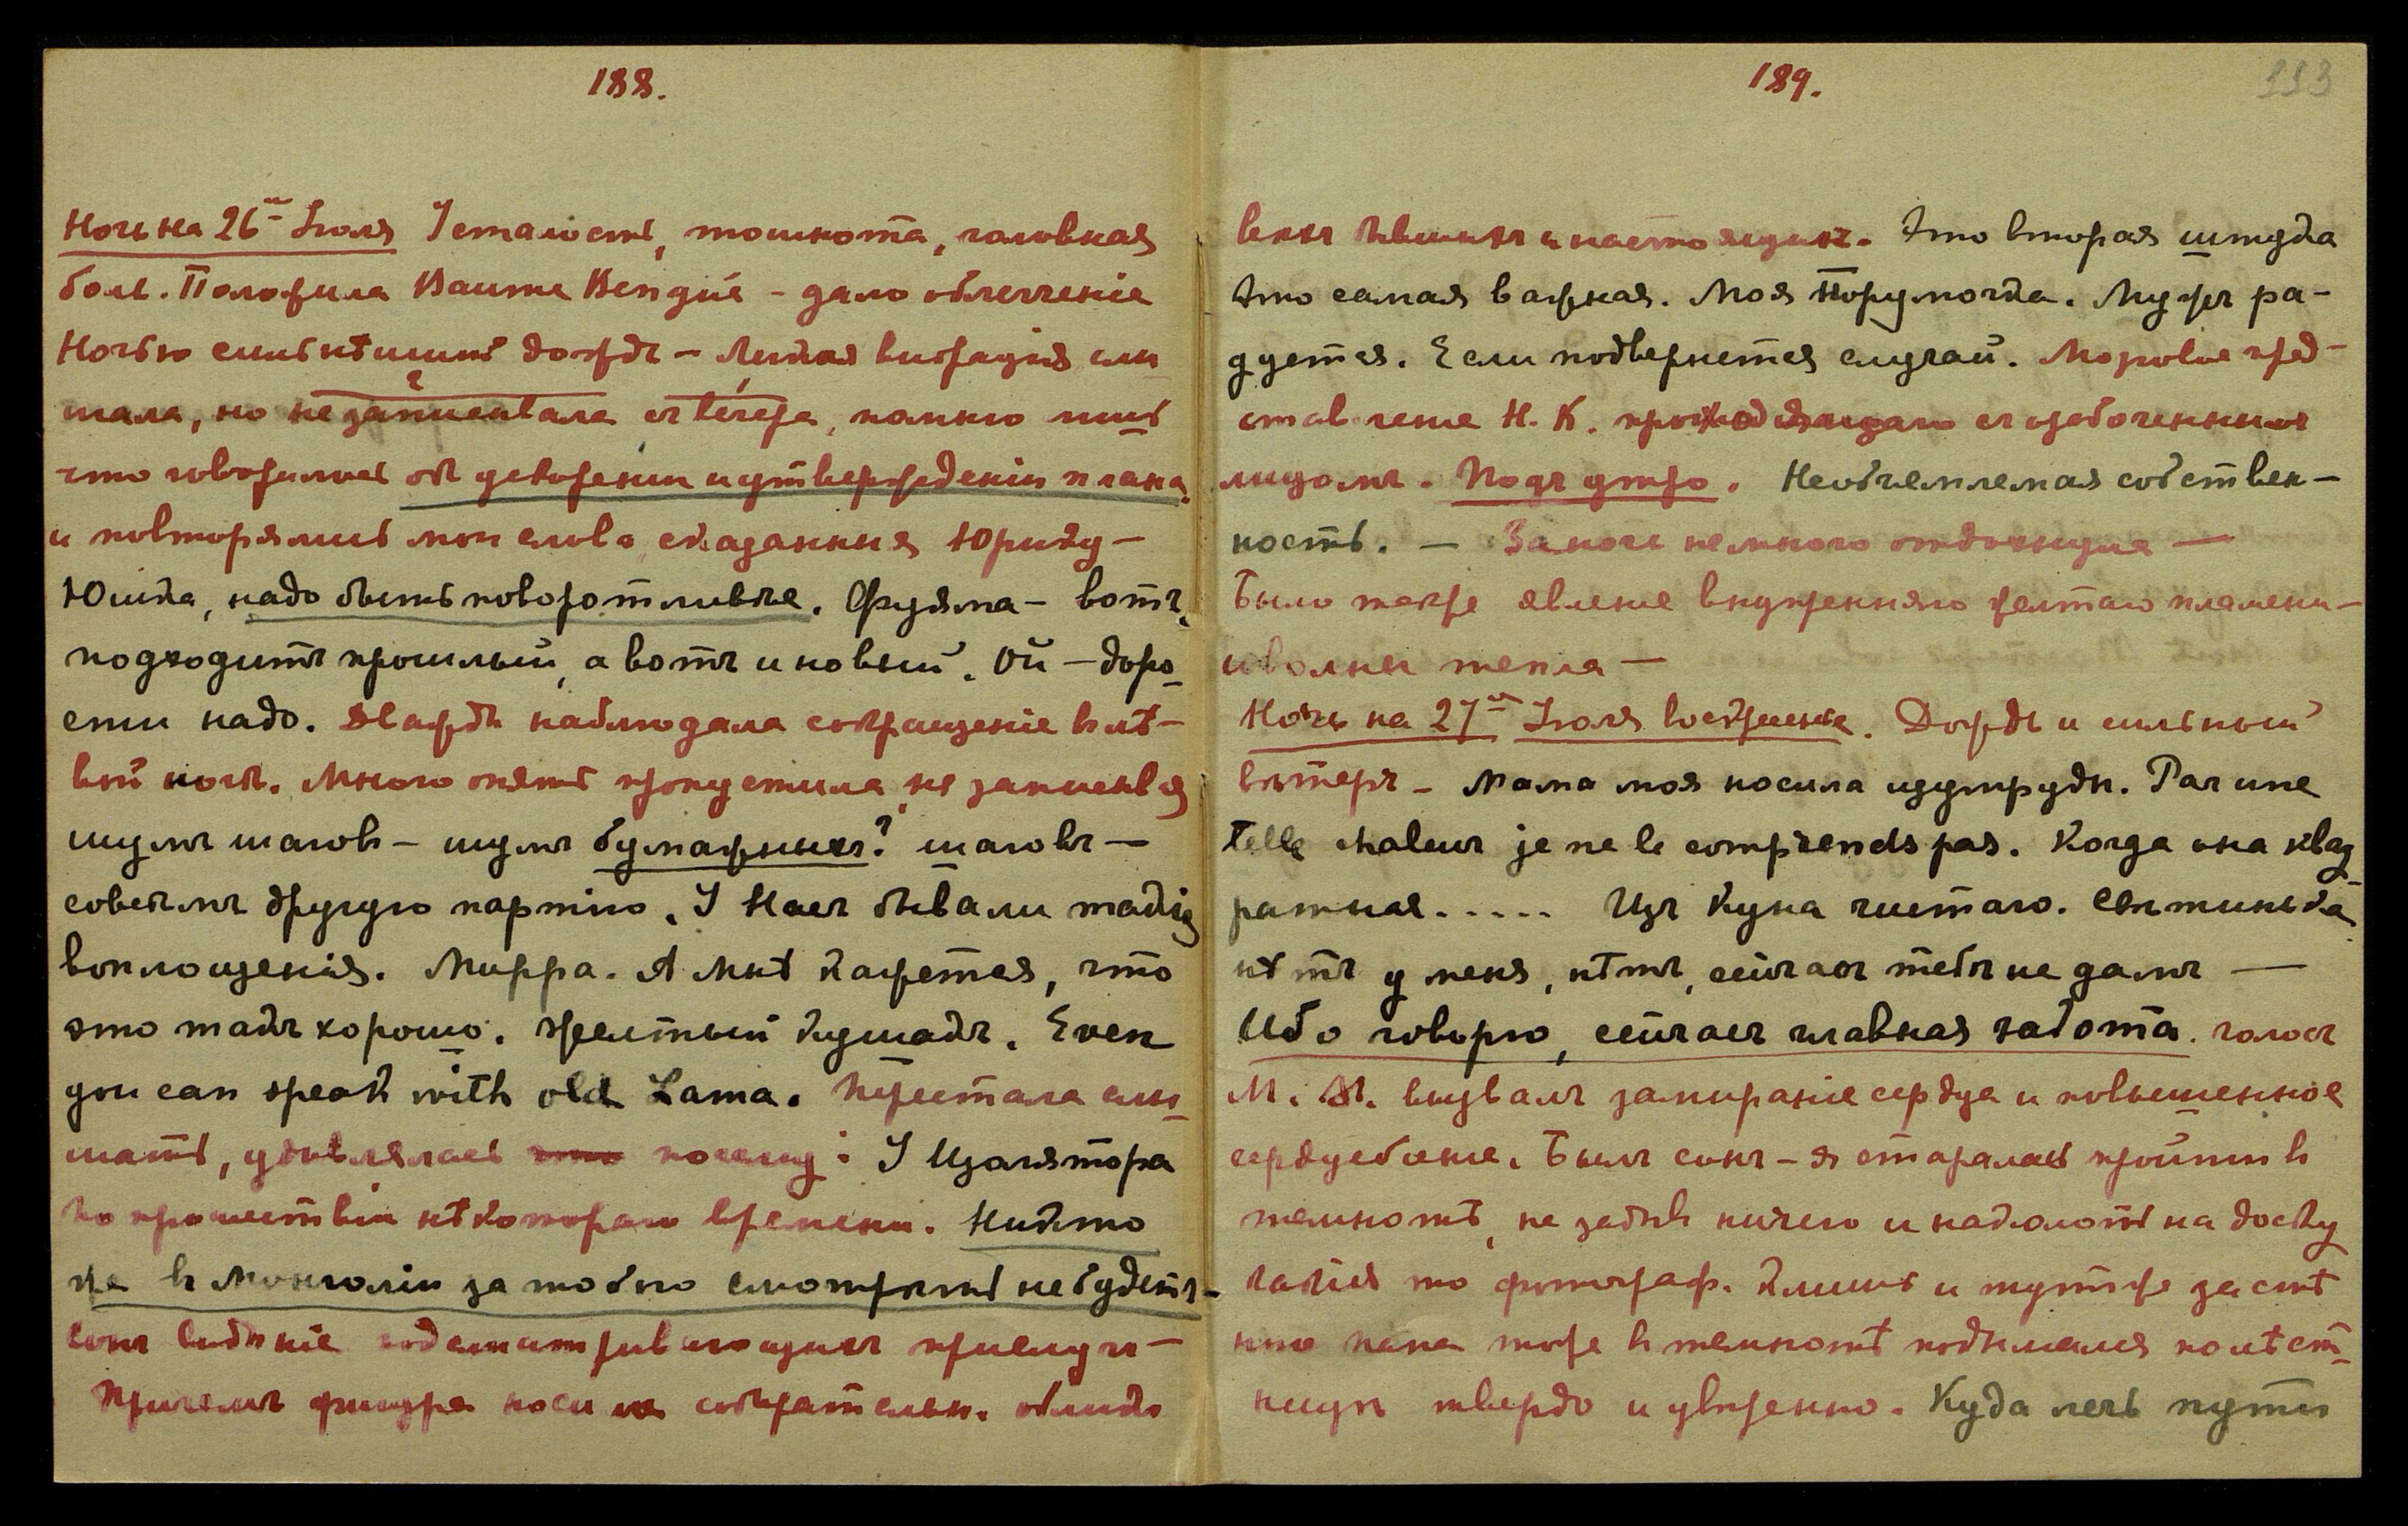 188.
Ночь на 26ое Iюля Усталость, тошнота, головная
боль. Положила Baume Bengué – дало облегченiе
Ночью сильнѣйшiй дождь – Легкая вибрацiя слы
шала, но не записывала et térefe, помню лишь
что говорилось объ ускоренiи и утвержденiи плана,
и повторялись мои слова, сказанныя Юрику –
Юшка, надо быть поворотливѣе. Фуяма – вотъ,
подходитъ прошлый, а вотъ и новый. Ой – доро
сти надо. Дважды наблюдала сокращенiе въ лѣ–
вой ногѣ. Много опять пропустила, не записывая
шумъ шаговъ – шумъ бумажныхъ? шаговъ –
совсѣмъ другую партiю. У Насъ бывали такiя
воплощенiя. Мирра. А Мнѣ кажется, что
это такъ хорошо. Желтый кушакъ. Even
you can speak with old Lama. Перестала слы
шать, удивлялась почему: У Изолятора
По прошествiи нѣкотораго времени. Никто
же въ Монголiи за тобою смотрѣть не будетъ –
Сонъ видѣнiе подсматривающихъ прислугъ –
Причемъ фигура носила собирательн. обликъ
189.
113
всѣхъ бывшихъ и настоящихъ. Это вторая штука
Это самая важная. Моя Порумочка. Мужъ ра–
дуется. Если подвернется случай. Моровое пред–
ставленiе Н. К. проходящаго съ озабоченнымъ
лицомъ. Подъ утро. Необъемлемая собствен–
ность. – За ночь немного отдохнула –
Было также явленiе внутренняго желтаго пламени –
и волны тепла –
Ночь на 27ое Iюля воскресенье. Дождь и сильный
вѣтеръ – Мама моя носила изумруды. Par une
telle chaleur je ne le comprends pas. Когда она квад
ратная..... Изъ Кука чистаго. Святинька
нѣтъ у меня, нѣтъ, сейчасъ тебѣ не дамъ –
Ибо говорю, сейчасъ главная забота. голосъ
М. М. вызвалъ замиранiе сердца и повышенное
сердцебiенье. Былъ сонъ – я старалась пройти въ
темнотѣ, не задѣвъ ничего и наколоть на доску
какiя то фотограф. клише и тутъ же за сте
ною папа тоже въ темнотѣ подымался по лѣст
ницѣ твердо и увѣренно. Куда лечь пути